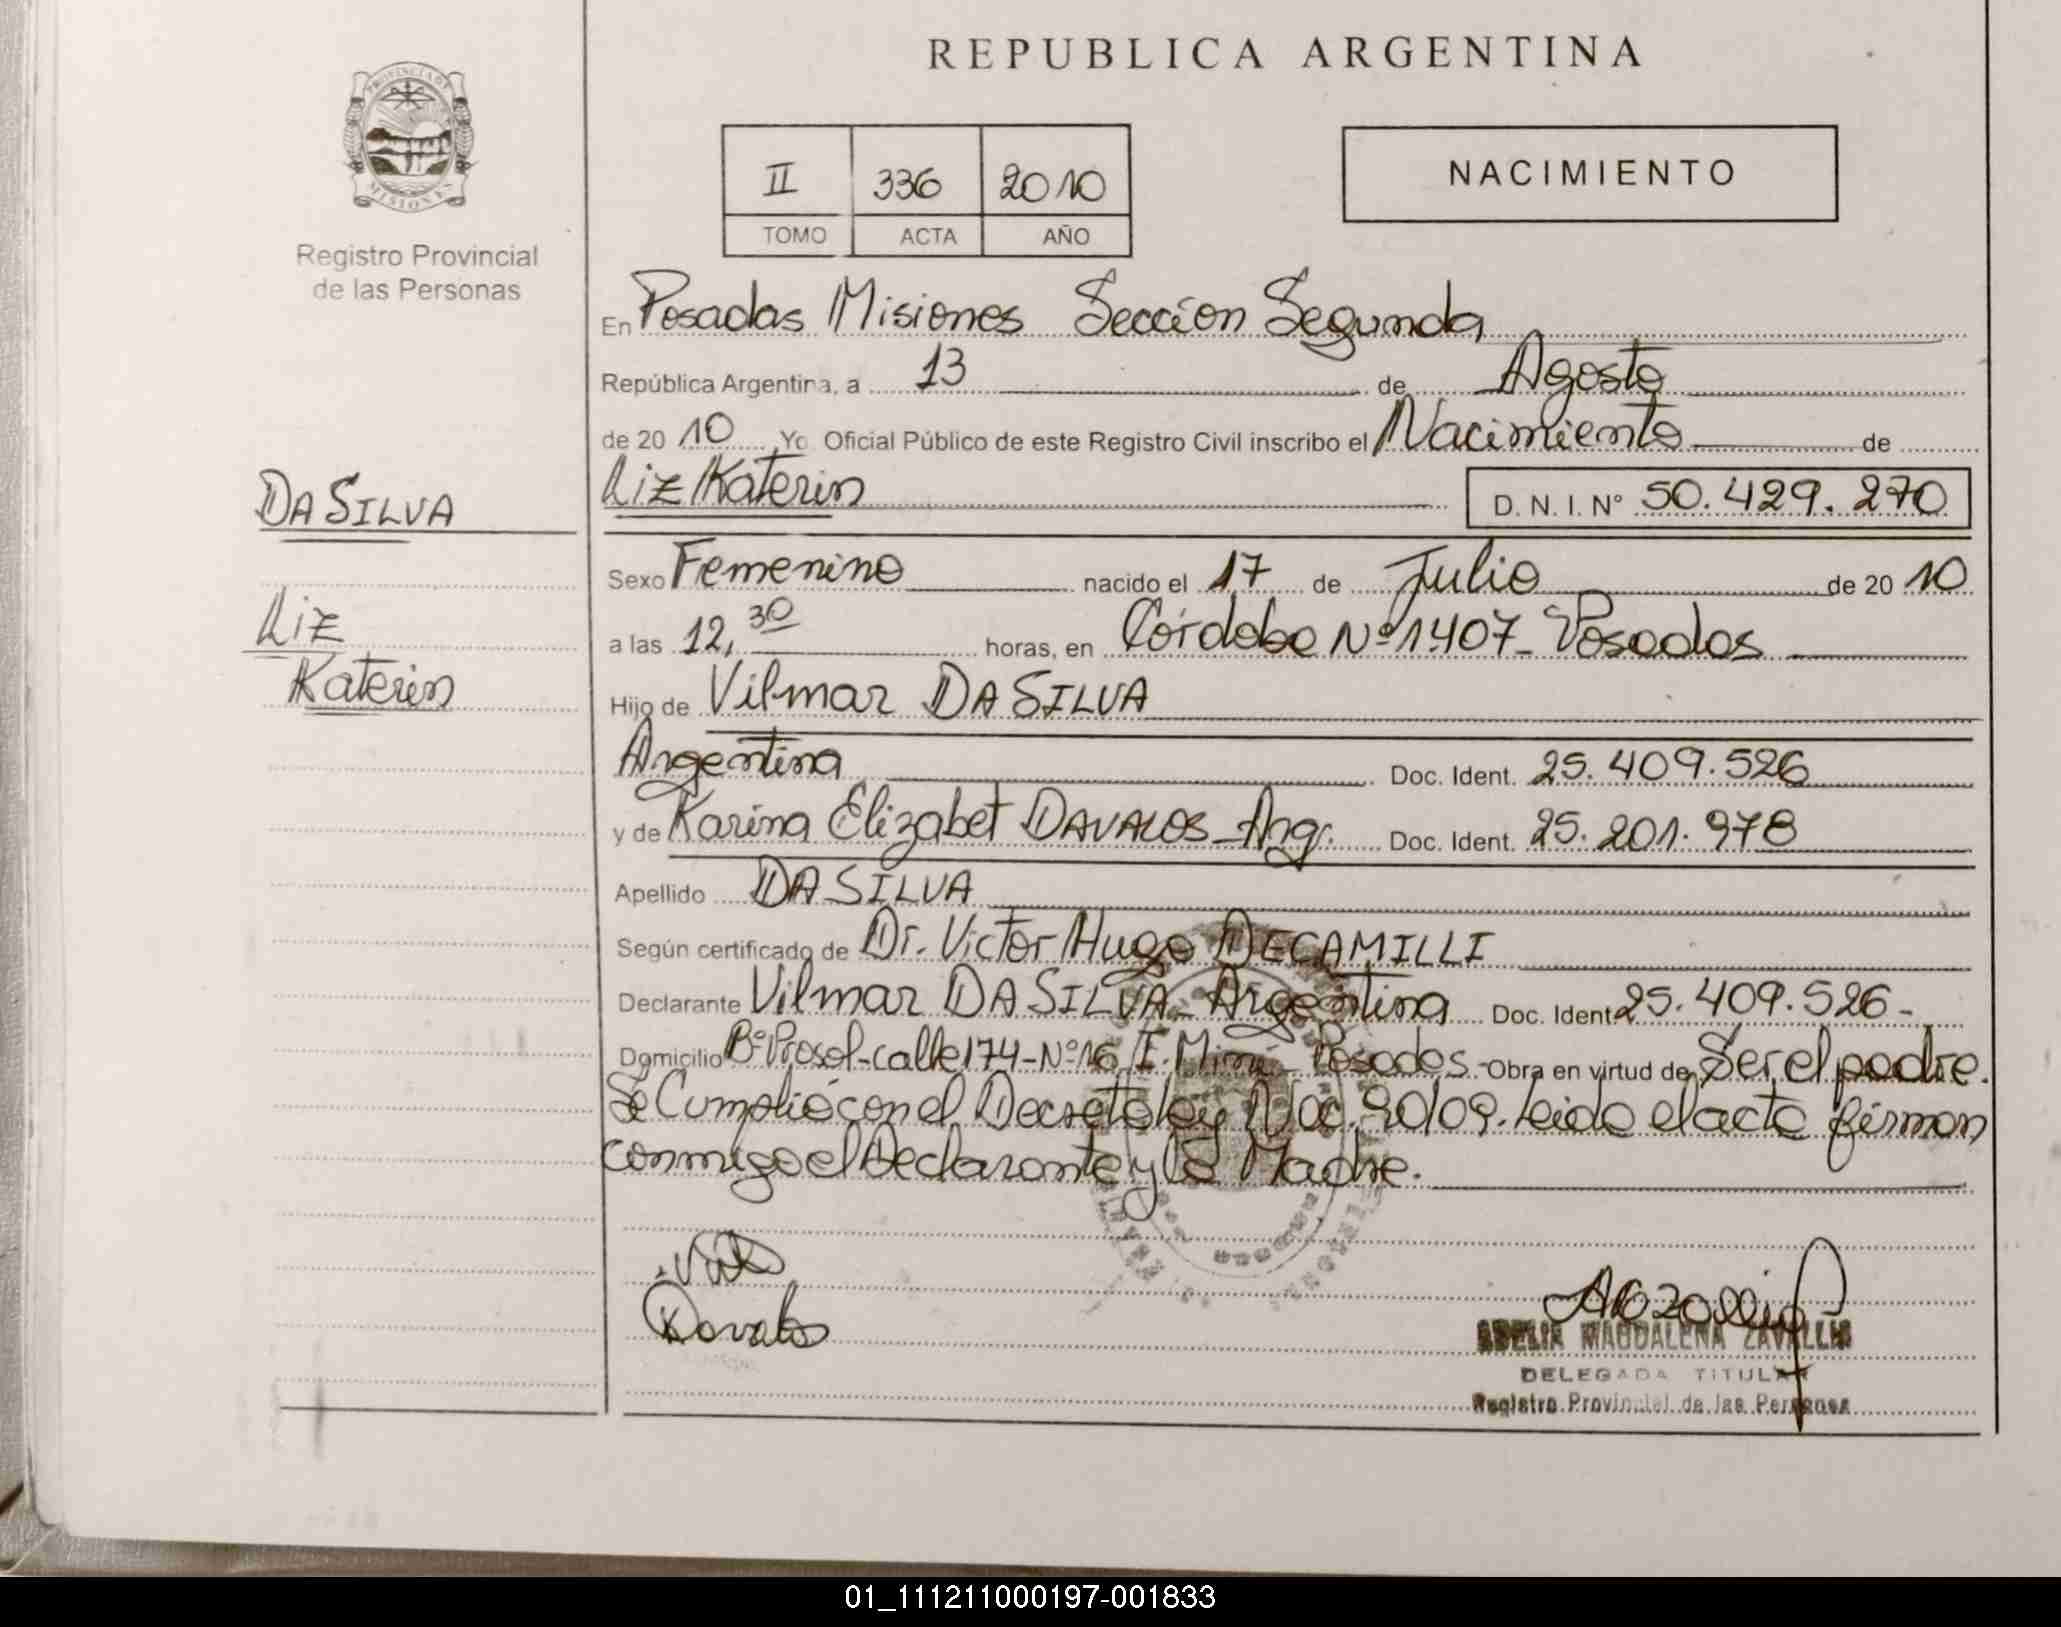 REPUBLICA ARGENTINA
PROVINCIA DE MISIONES
Registro Provincial
de las Personas
II 336 2010
TOMO ACTA AÑO
NACIMIENTO
En Posadas Misiones Sección Segunda
República Argentina, a 13 de Agosto
de 20 10 Yo Oficial Público de este Registro Civil inscribo el Nacimiento de
DA SILVA
Liz Katerin D. N. I. N° 50.429.270
Sexo Femenino nacido el 17 de Julio de 20 10
Liz
a las 12,30 horas, en Córdoba Nº 1407- Posadas
Katerin
Hijo de Vilmar DA SILVA
Argentina Doc. Ident. 25.409.526
y de Karina Elizabet DAVALOS - Arg. Doc. Ident. 25.201.978
Apellido DA SILVA
Según certificado de Dr. Victor Hugo DECAMILLI
Declarante Vilmar DA SILVA - Argentina Doc. Ident. 25.409.526-
Domicilio Bº Prosol-calle 174-Nº16 I. Miní - Posadas. Obra en virtud de Ser el padre.
Se Cumplió con el Decreto ley Nac. 90/09. Leido el acta firman
conmigo el Declarante y la Madre.
Davalos
ADELIA MAGDALENA ZAVALLIA
DELEGADA TITULAR
Registro Provincial de las Personas
01_111211000197-001833